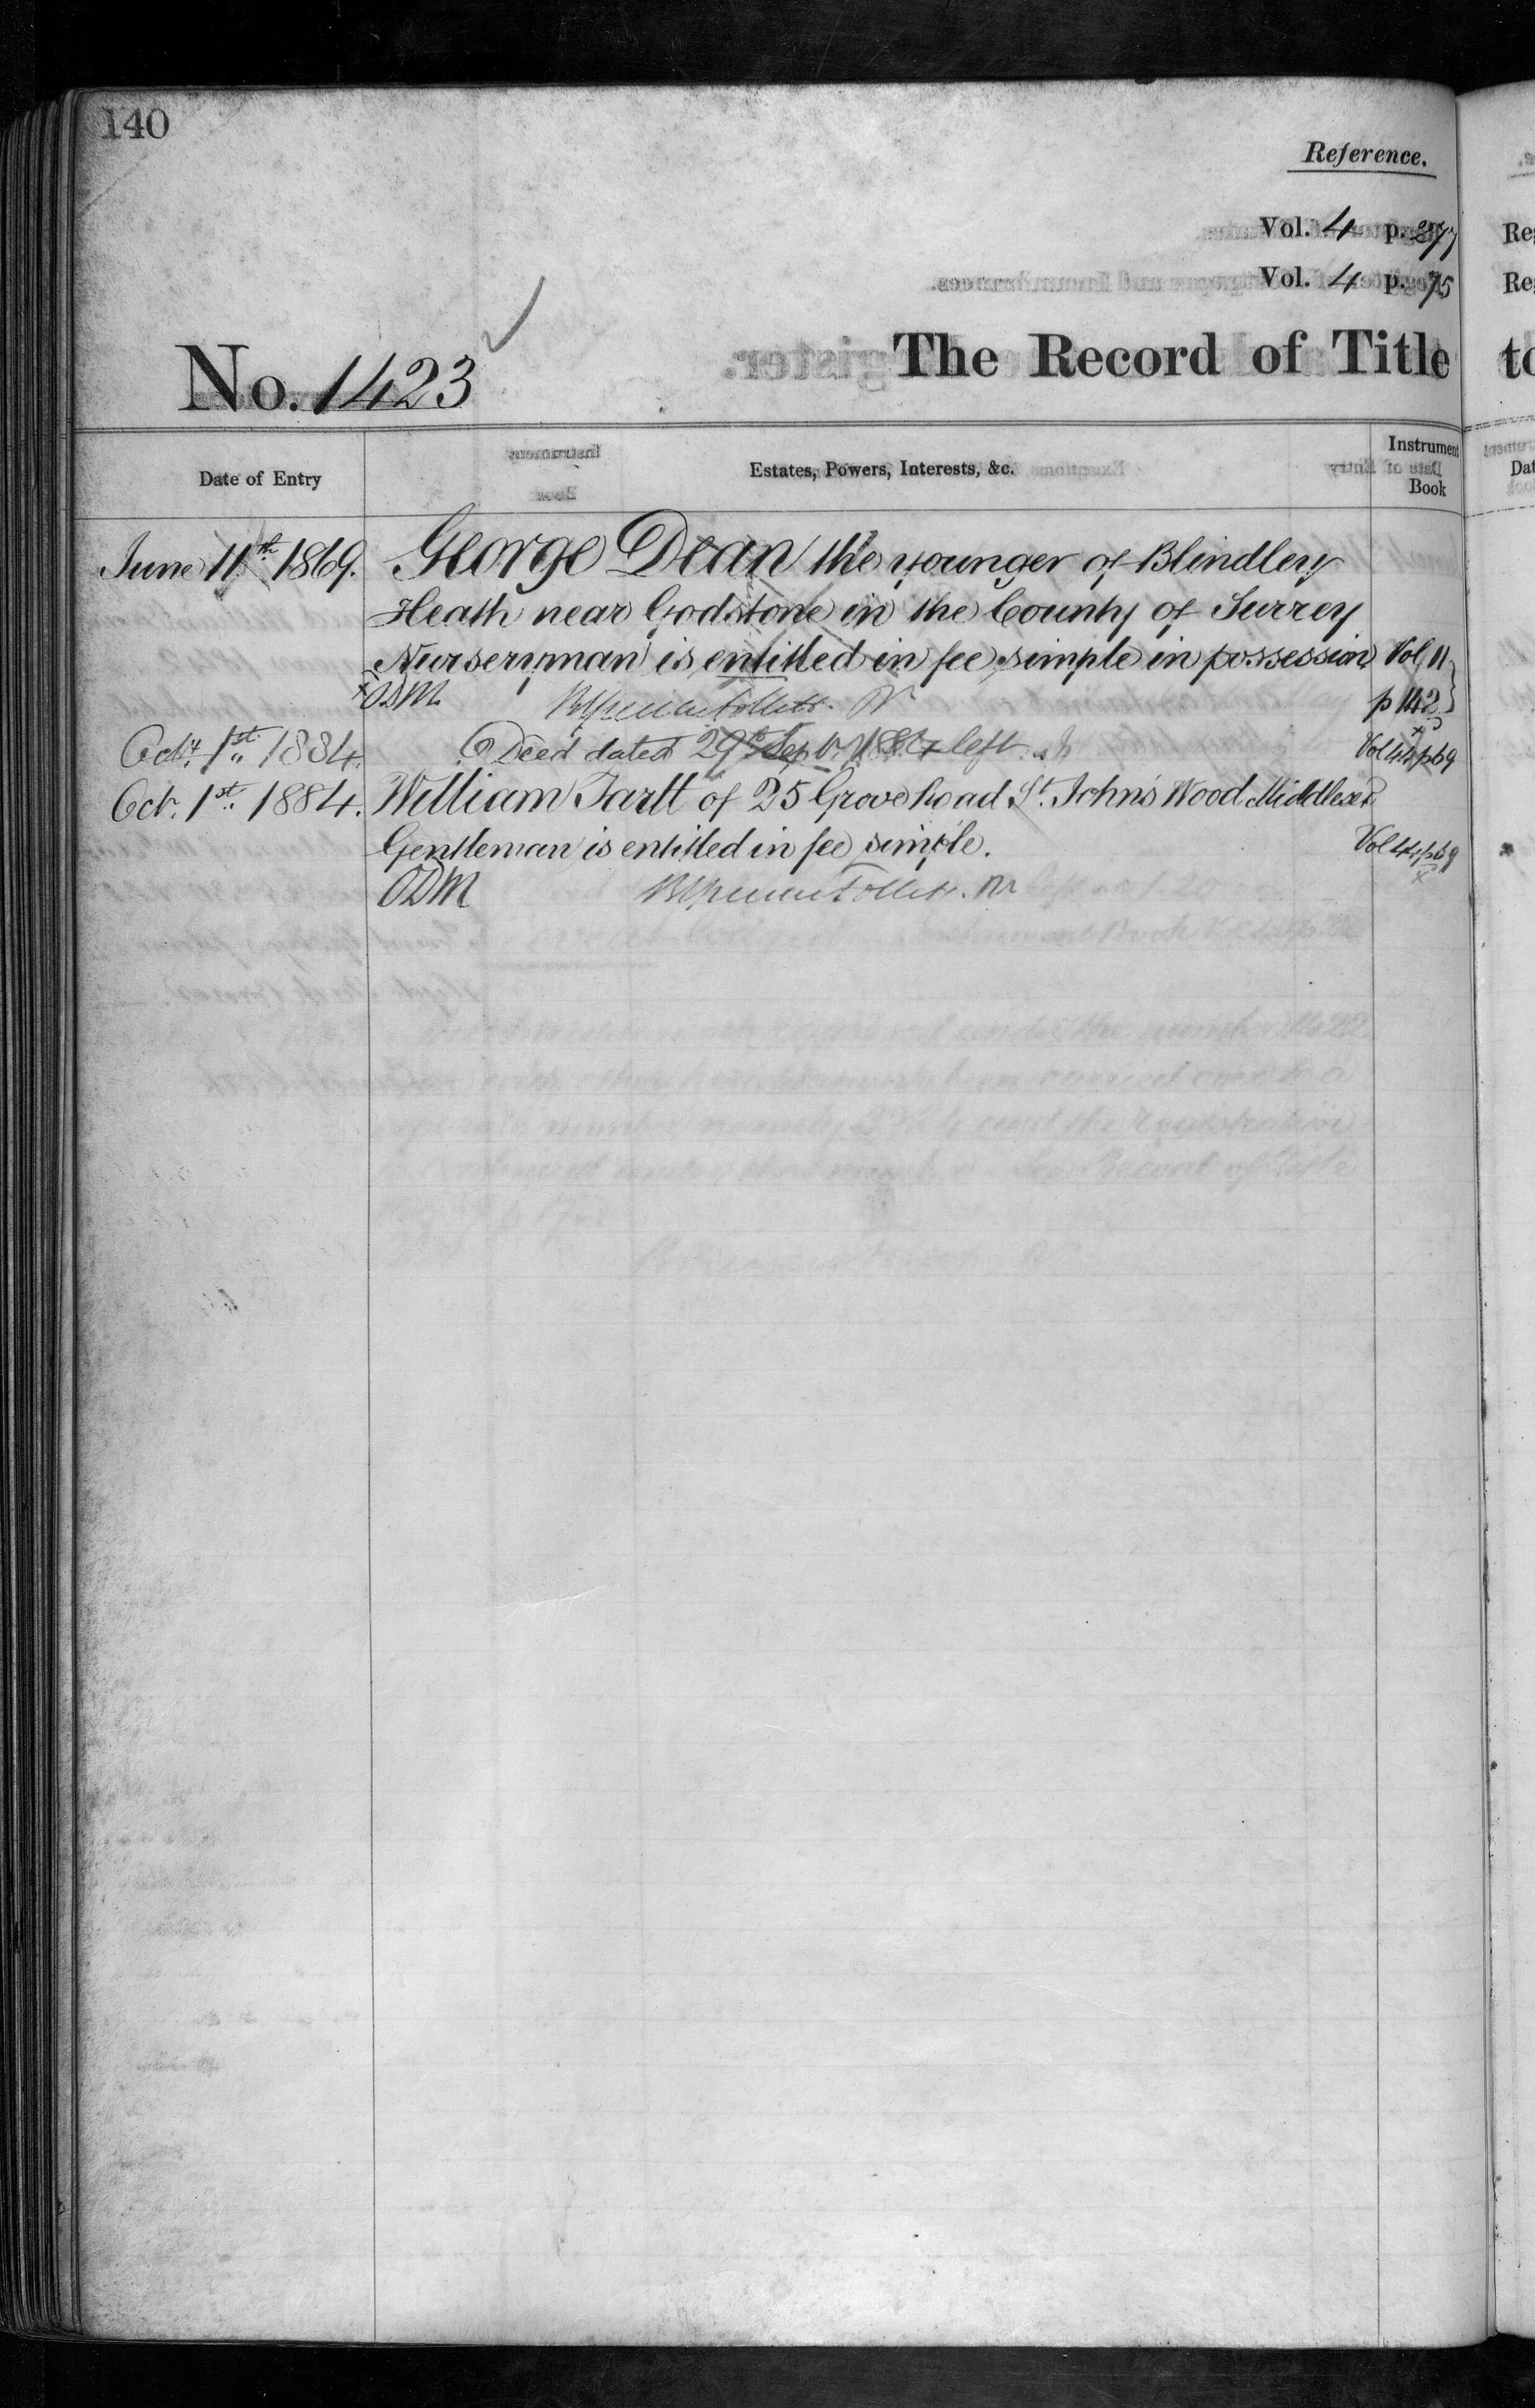 140
Reference.
Vol. 4 p. 277
Vol. 4 p. 75
No. 1423 The Record of Title
Date of Entry Estates, Powers, Interests, &c. Instrument Book
June 11th 1869. George Dean the younger of Blindley
Heath near Godstone in the County of Surrey
Nurseryman is entitled in fee simple in possession Vol 11
ODM p 142
Oct. 1st 1884. Deed dated 29th Sep 1884 left Vol 44 p 69
Oct. 1st 1884. William Tartt of 25 Grove Road St. John's Wood Middlesex
Gentleman is entitled in fee simple. Vol 44 p 69
ODM